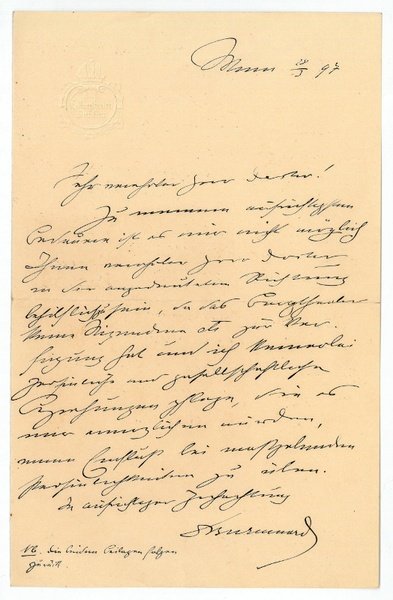 Wien 28/5 97
Sehr verehrter Herr Doctor!
Zu meinem aufrichtigsten
Bedauern ist es mir nicht möglich
Ihnen verehrter Herr Doctor
in der angedeuteten Richtung
behilflich zu sein, da das
keine Stipendien etc zur Ver-
fügung hat und ich keinerlei
persönliche und gesellschaftliche
Beziehungen pflege, die es
mir ermöglichen würden,
einen Einfluß bei maßgebenden
Persönlichkeiten zu üben.
In aufrichtiger Hochachtung
NB. die beiden Beilagen folgen
zurück.